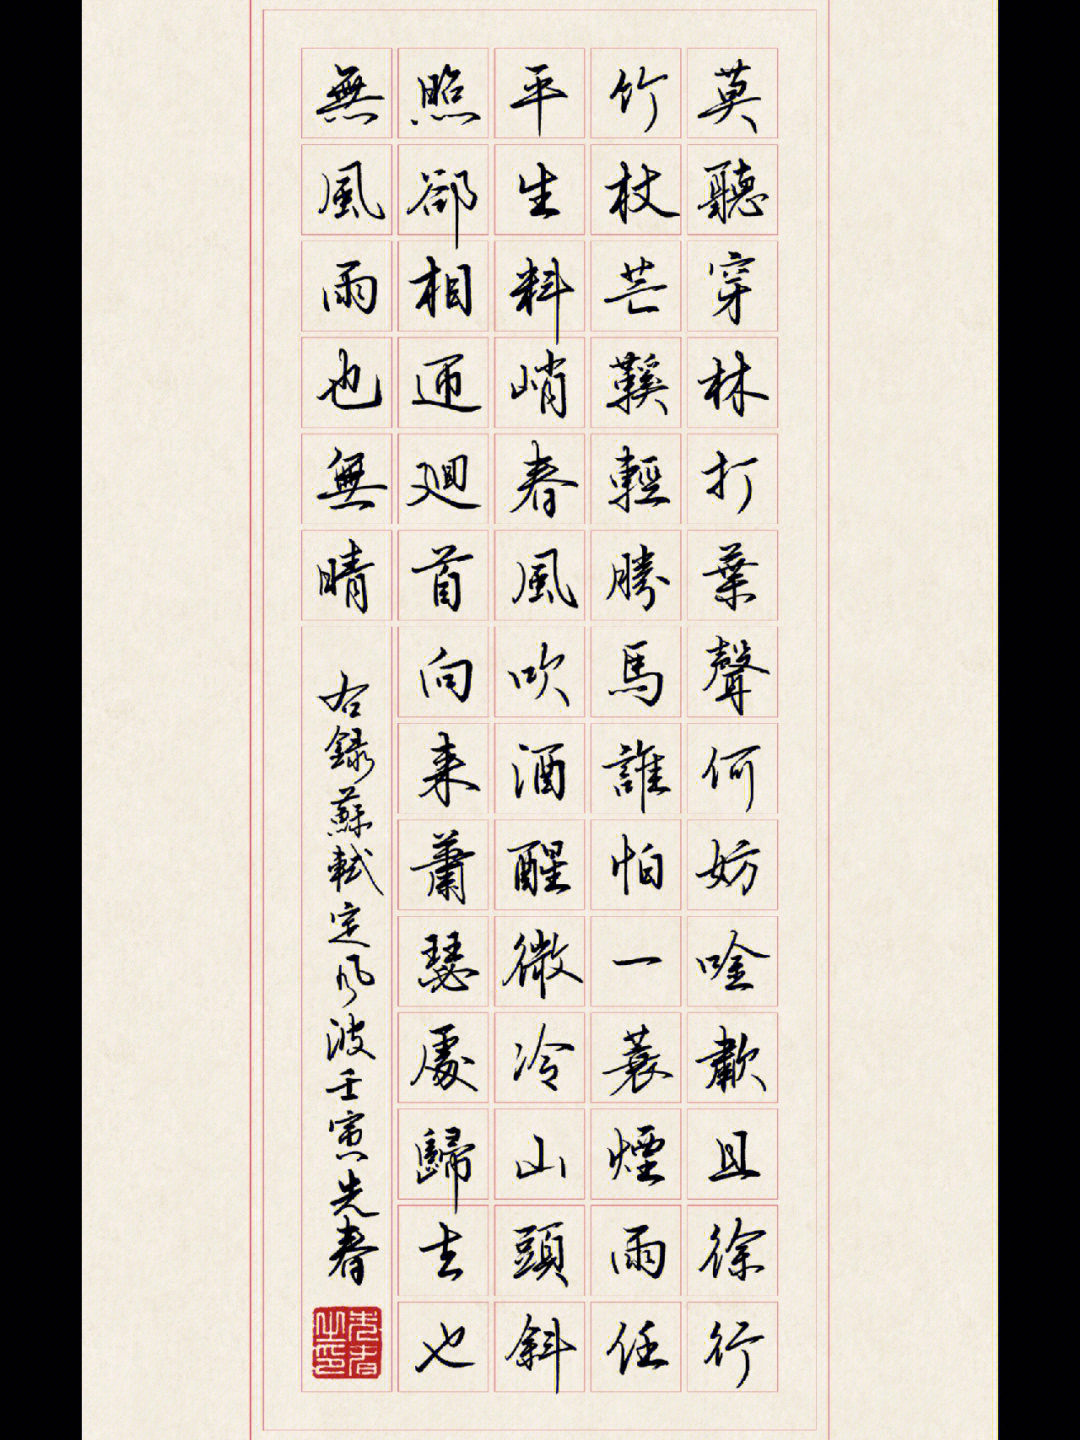 莫聽穿林打葉聲何妨唫歗且徐行
竹杖芒鞵輕勝馬誰怕一蓑煙雨任
平生料峭春風吹酒醒微冷山頭斜
照郤相迎廻首向来蕭瑟處歸去也
無風雨也無晴
右録蘇軾定风波壬寅先春
先春之印